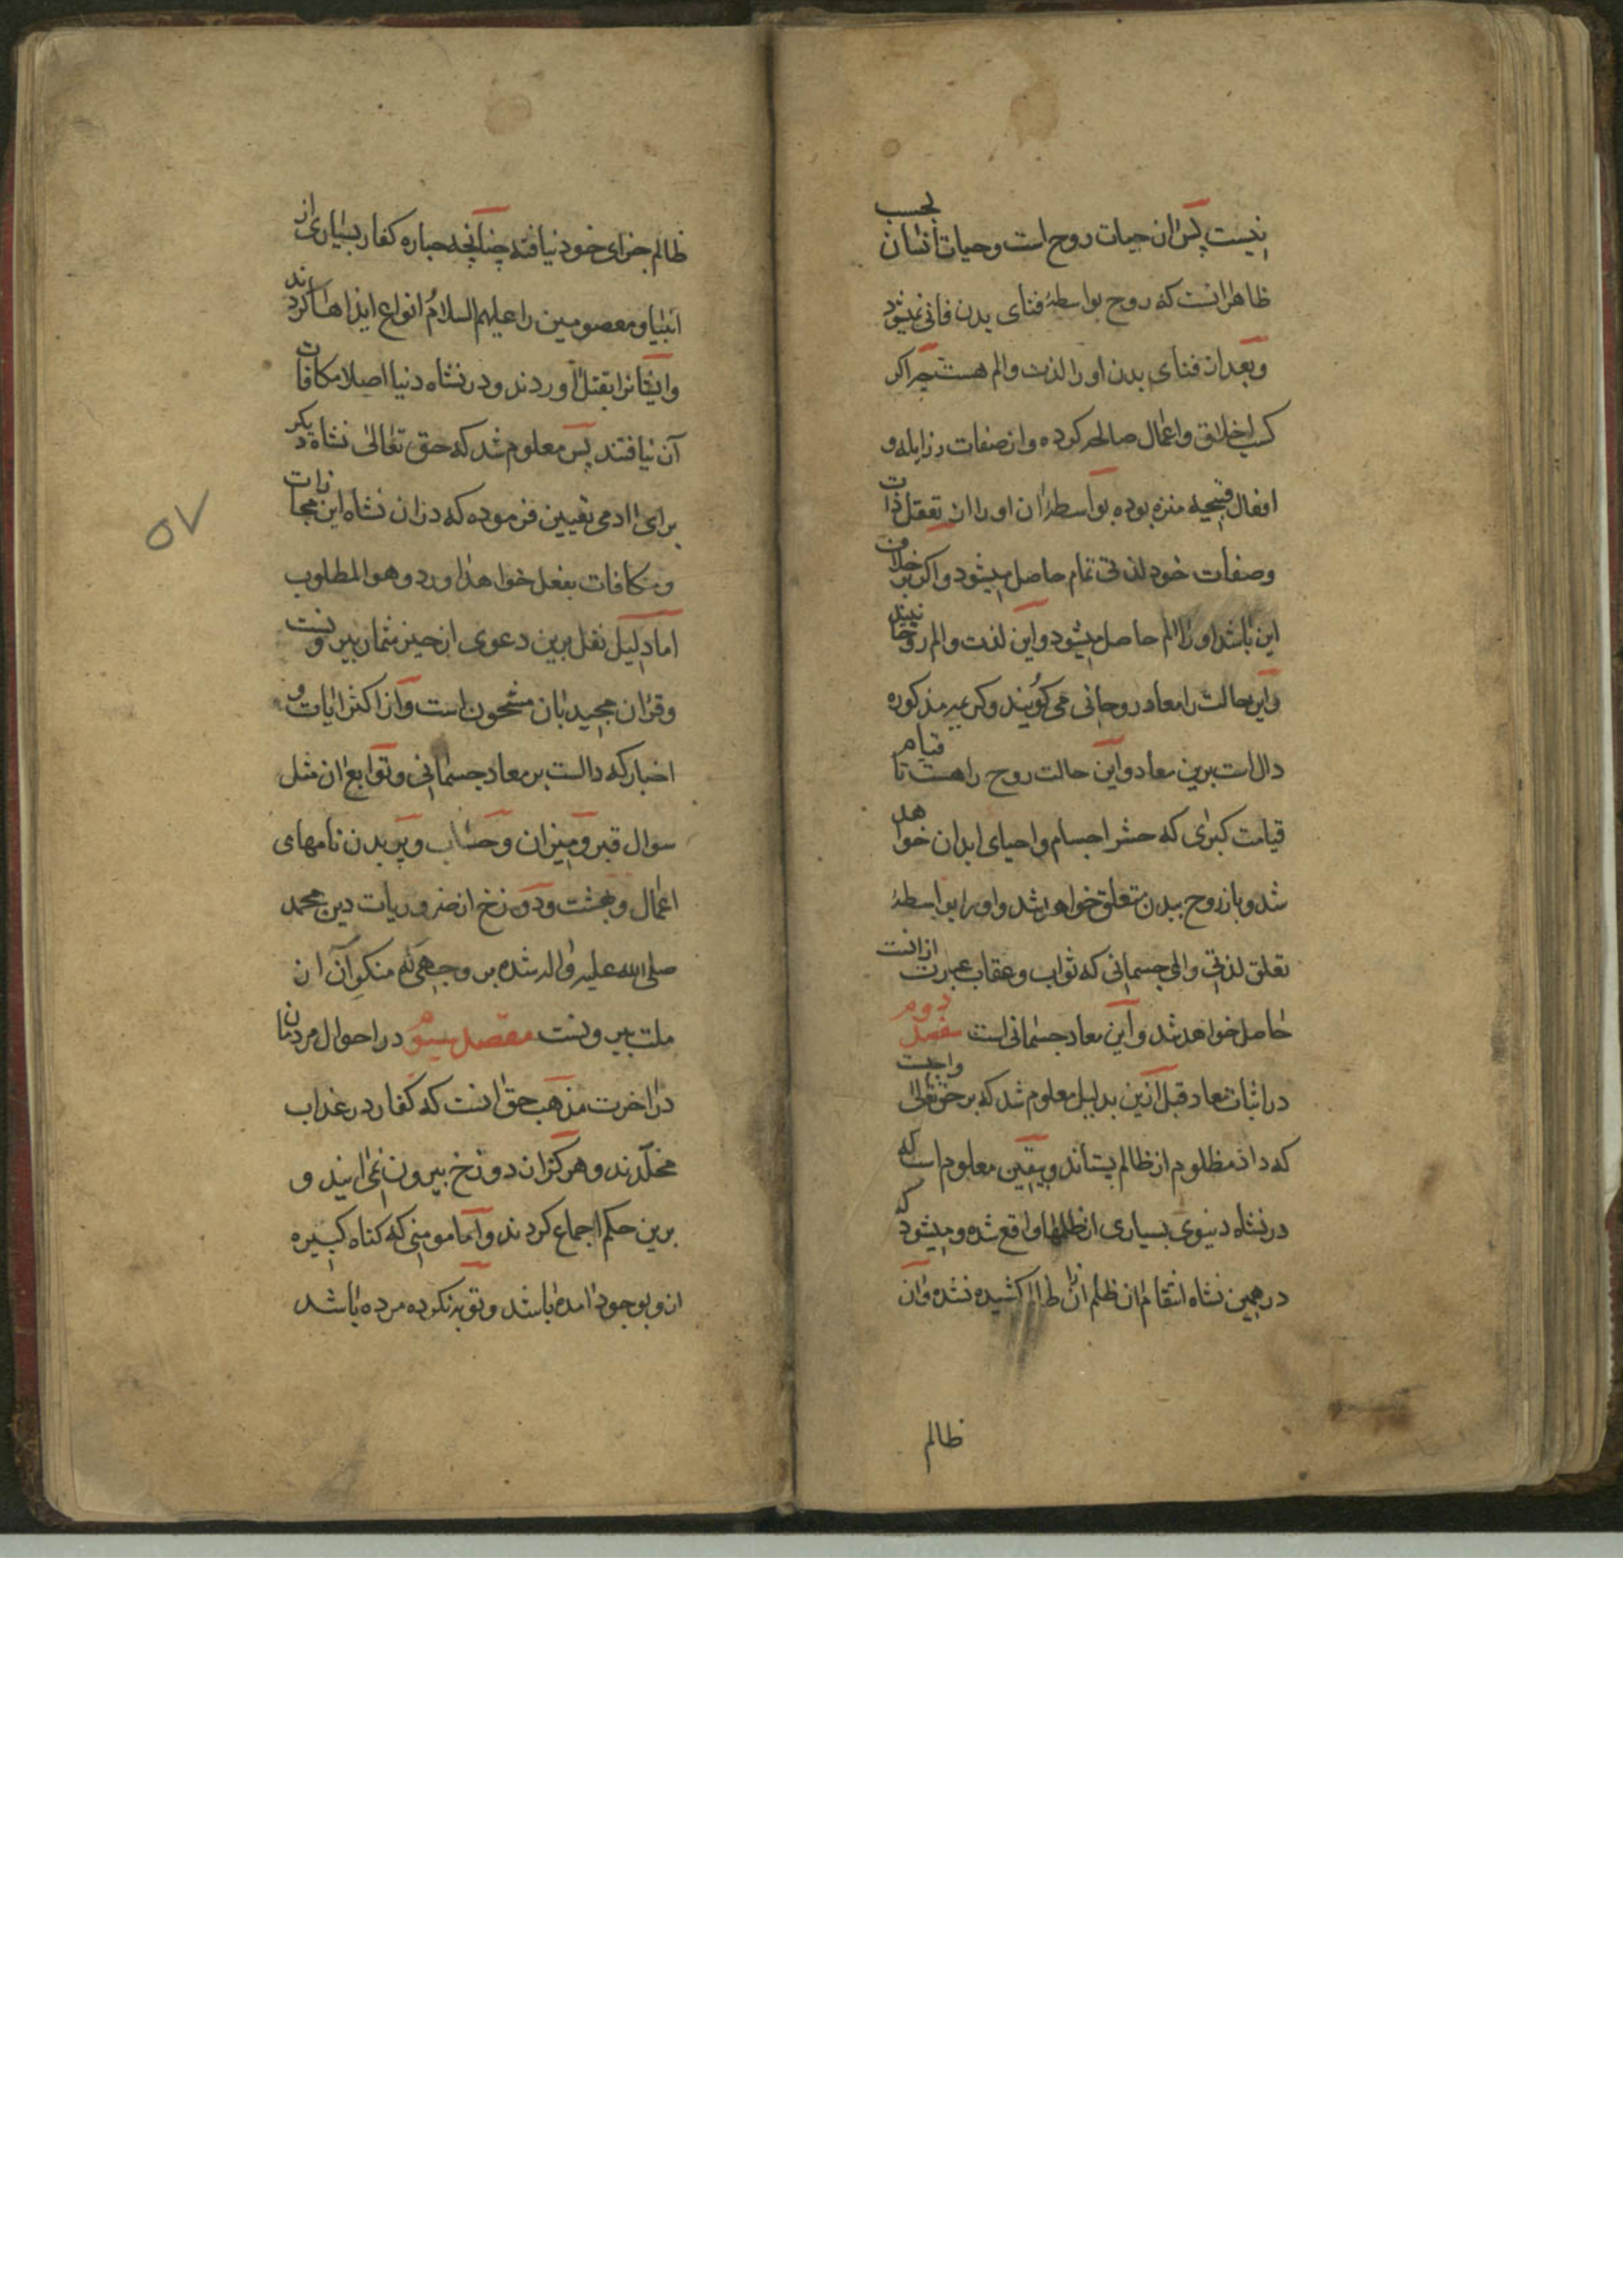 نیست پس ان حیات روح است و حیات انسان بحسب
ظاهر انست که روح بواسطهٔ فنای بدن فانی نمیشود
و بعد از فنای بدن او را لذت و الم هست چه اکر
کسب اخلاق و اعمال صالحه کرده و از صفات رزایله و
افعال قبیحه منزه بوده بواسطهٔ ان او را از تعقل ذات
و صفات خود لذتی تمام حاصل میشود و اکر بر خلاف
این باشد او را الم حاصل میشود و این لذت و الم روحا نیند
و این حالت را معاد روحانی می کویند و کریمه مذکوره
دال است برین معاد و این حالت روح را هست تا قیام
قیامت کبرای که حشر اجسام و احیای ابدان خواهد
شد و باز روح ببدن متعلق خواهد شد و او را بواسطهٔ
تعلق لذتی و المی جسمانی که ثواب و عقاب عبرت ازانست
حاصل خواهد شد و این معاد جسمانی است مقصد دوم
در اثبات معاد قبل ازین بدلیل معلوم شد که بر حق تعالی واجبست
که داد مظلوم از ظالم بستاند و بیقین معلوم است که
در نشاه دنیوی بسیاری از ظلمها واقع شده و میشود که
در همین نشاه انتقام ان ظلم ازان ظالم کشیده نشده و ان
ظالم
ظالم جزای خود نیافته چنانچه جباره کفار بسیاری از
انبیا و معصومین را علیهم السلام انواع ایذاها کرده اند
و ایشانرا بقتل آوردند و در نشاه دنیا اصلا مکافات
آن نیافتند پس معلوم شد که حق تعالی نشاه دیکر
برای ادمی تعیین فرموده که دران نشاه این مجازات
و مکافات بفعل خواهد اورد و هو المطلوب
اما دلیل نقل برین دعوی از حیز شمار بیرونست
و قران مجید بان مشحون است و از اکثر ایات و
اخبار که دالست بر معاد جسمانی و توابع ان مثل
سوال قبر و میزان و حساب و پریدن نامهای
اعمال و بهشت و دوزخ از ضروریات دین محمد
صلی الله علیه و اله شده بر وجهی که منکر آن از
ملت بیرونست مقصد سیوم در احوال مردمان
در اخرت مذهب حق انست که کفار در عذاب
مخلدند و هرکز ازان دوزخ بیرون نمی ایند و
برین حکم اجماع کردند و اما مومنی که کناه کبیره
ازو بوجود امده باشد و توبه نکرده مرده باشد
۵۷